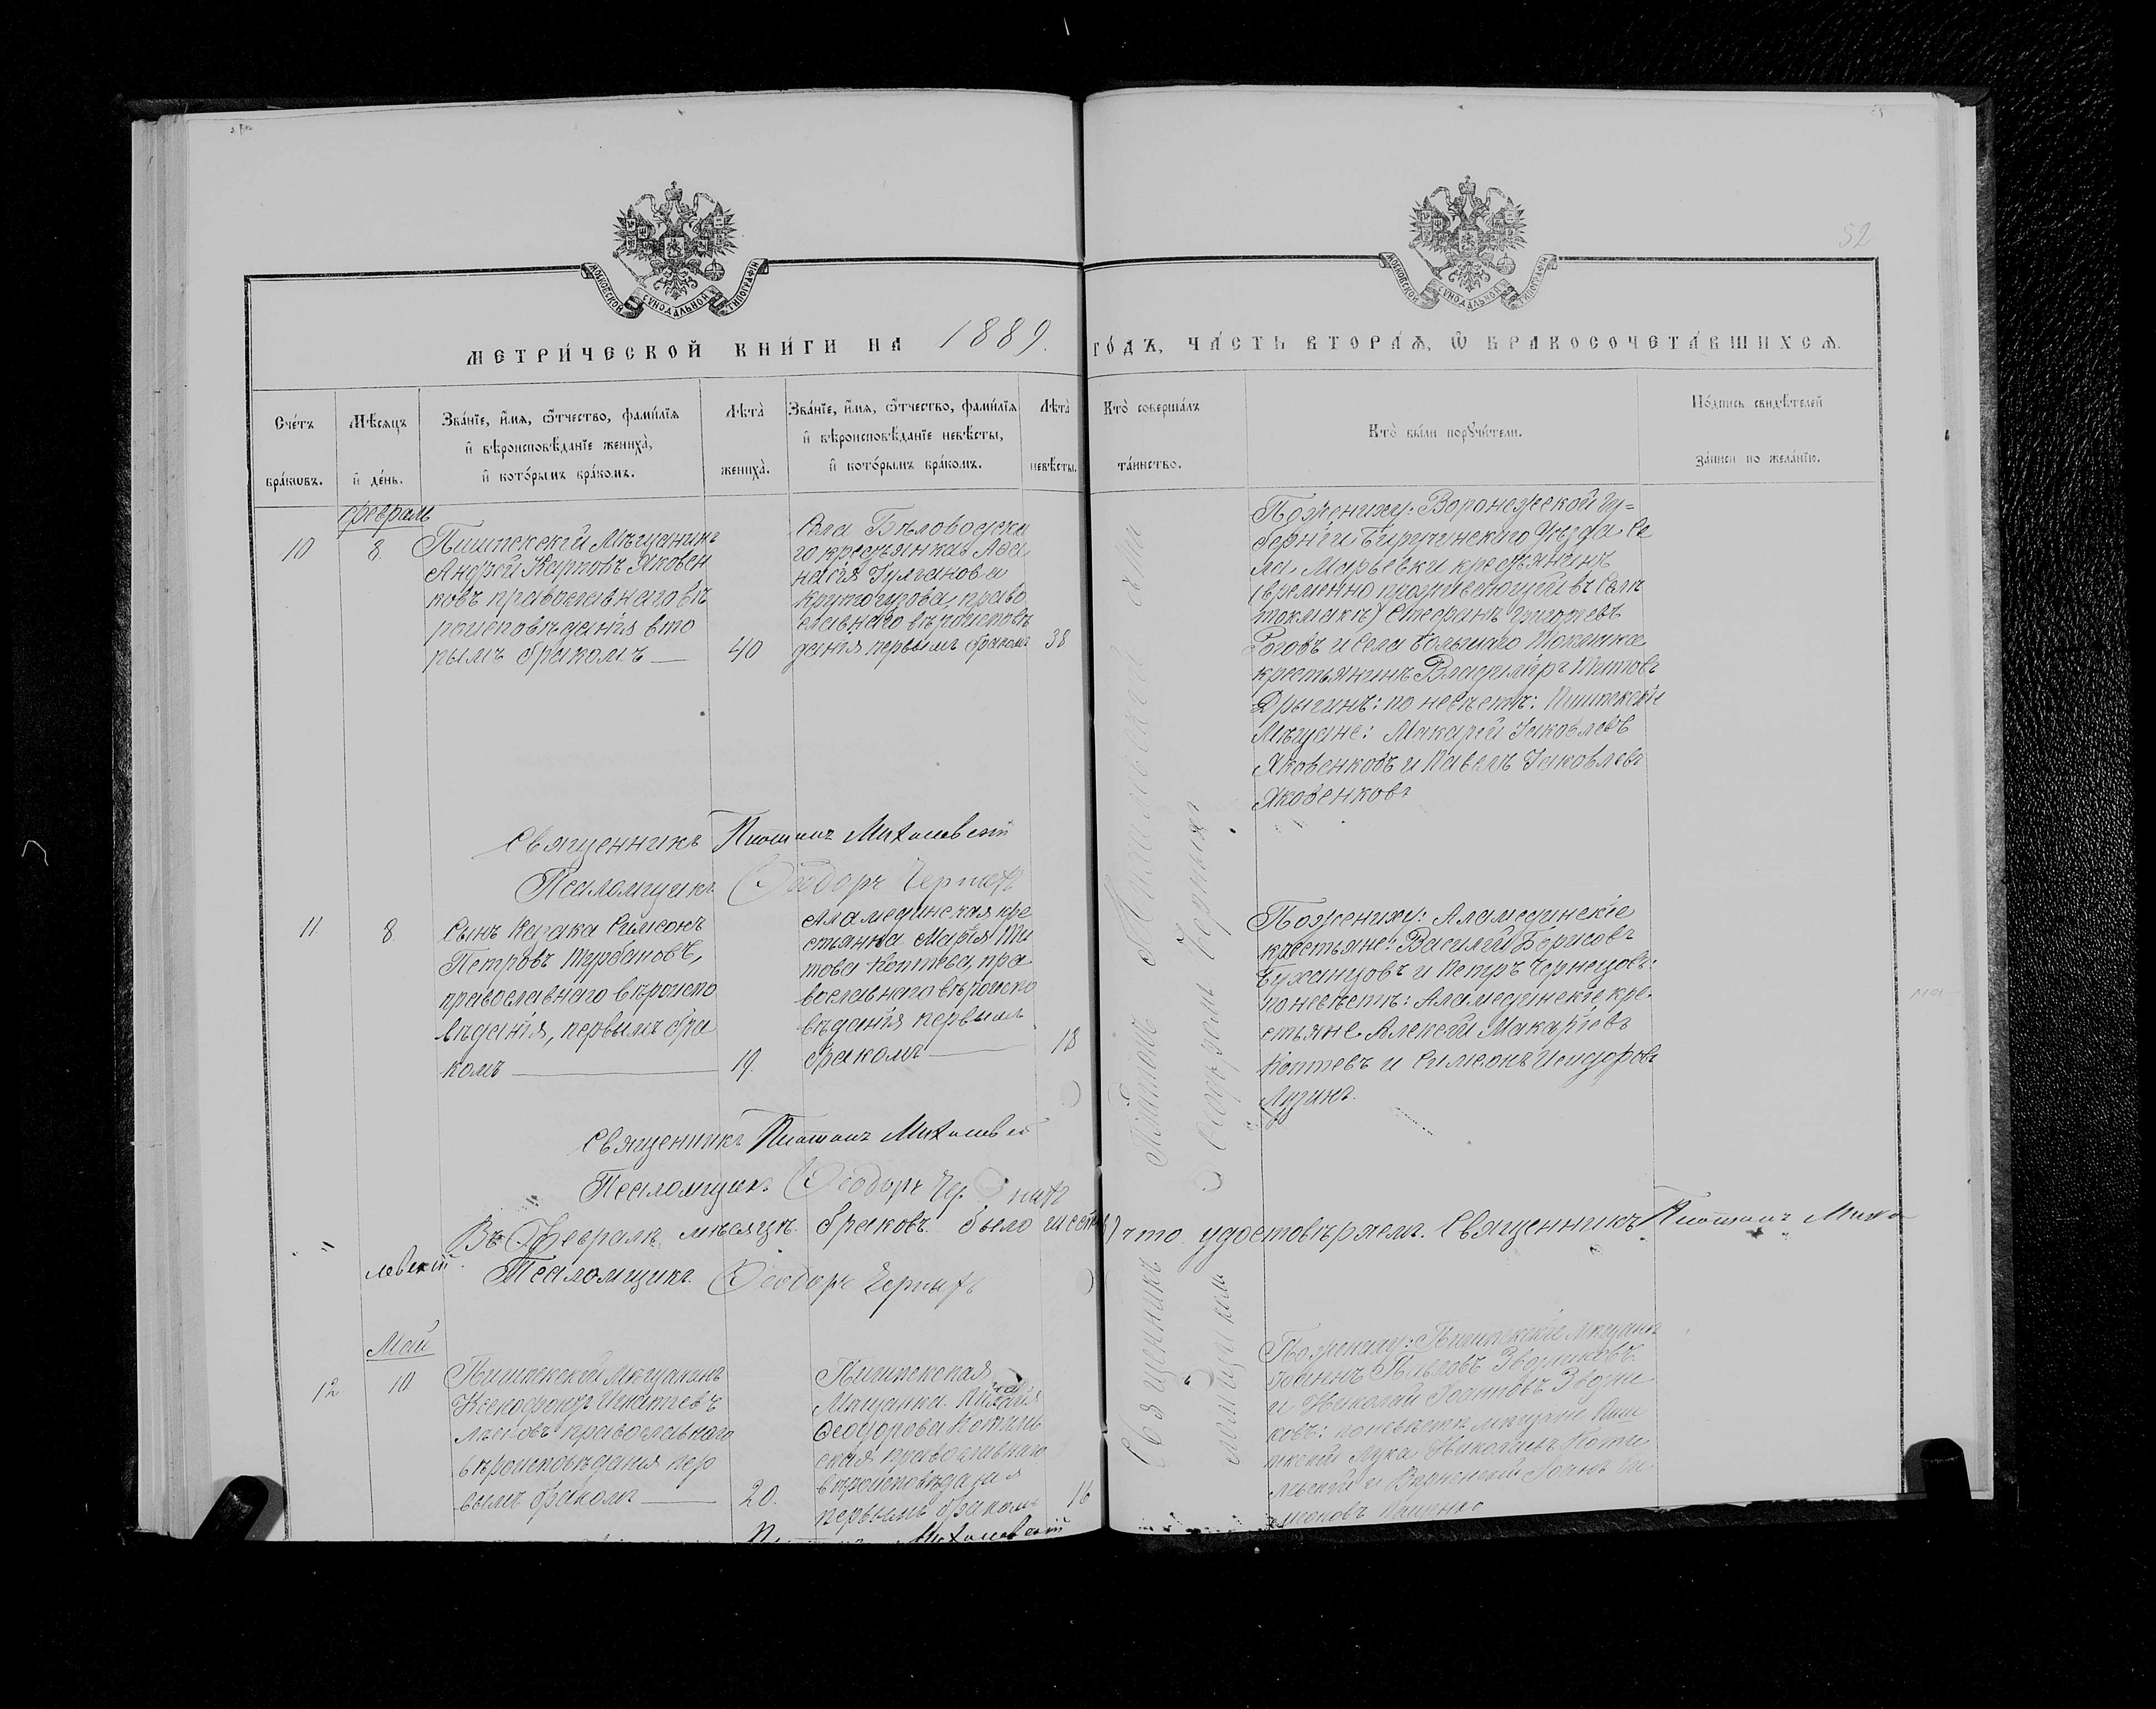 52
МОСКОВСКОЙ СѴНОДАЛЬНОЙ ТИПОГРАФІИ
МОСКОВСКОЙ СѴНОДАЛЬНОЙ ТИПОГРАФІИ
МЕТРИ́ЧЕСКОЙ КНИ́ГИ НА 1889. ГО́ДЪ, ЧА́СТЬ ВТОРА́Ѧ, Ѿ БРАКОСОЧЕТА́ВШИХСѦ.
Сче́тъ бра́кωвъ.
Мѣ́сѧцъ и҆ де́нь.
Зва́нїе, и҆́мѧ, ѻ҆́тчество, фами́лїѧ
и҆ вѣроисповѣ́данїе жениха̀,
и҆ кото́рымъ бра́комъ.
Лѣта̀ жениха̀.
Зва́нїе, и҆́мѧ, ѻ҆́тчество, фами́лїѧ
и҆ вѣроисповѣ́данїе невѣ́сты,
и҆ кото́рымъ бра́комъ.
Лѣта̀ невѣ́сты.
Кто̀ соверша́лъ та́инство.
Кто̀ бы́ли порꙋчи́тели.
По́дпись свидѣ́телей
за́писи по жела́нїю.
Февраль
10
8.
Пишпекскій Мѣщанинъ
Андрей Карповъ Яковен
ковъ православнаго вѣ
роисповѣданія вто
рымъ бракомъ
40
Села Бѣловодска
го крестьянка Аѳа
насія
Крутогузова, право
славнаго вѣроисповѣ
данія первымъ бракомъ
38
По женихѣ: Воронежской Гу=
берніи Бирюченскаго Уѣзда Се
ла, Марьевки крестьянинъ
(временно проживающій въ Селѣ
Токмакъ) Стефанъ Григорьевъ
Роговъ и Села Большаго Токмака
крестьянинъ Владиміръ Титовъ
Дрыгинъ: по невѣстѣ: Пишпекскіе
Мѣщане: Макарій Іаковлевъ
Яковенковъ и Павелъ Іаковлевъ
Яковенковъ
Священникъ Платонъ Михалевскій
Псаломщикъ Ѳеодоръ Черныхъ
11
8.
Сынъ Казака Симеонъ
Петровъ Турбановъ,
православнаго вѣроиспо
вѣданія, первымъ бра
комъ
19.
Аламединская кре
стьянка Марія Ти
това Коптева, пра
вославнаго вѣроиспо
вѣданія первымъ
бракомъ
18
По женихѣ: Аламединскіе
крестьяне: Василій Борисовъ
Буханцовъ и Петръ Чернецовъ:
по невѣстѣ: Аламединскіе кре
стьяне Алексѣй Макаріевъ
Коптевъ и Симеонъ Исидоровъ
Лузинъ.
Священникъ Платонъ Михалевскій
Псаломщикъ Ѳеодоръ Черныхъ
Въ Февралѣ мѣсяцѣ браковъ было шесть) что удостовѣряемъ. Священникъ Платонъ Миха
левскій. Псаломщикъ Ѳеодоръ Черныхъ
Священникъ Платонъ Михалевскій съ
псаломщикомъ Ѳеодоромъ Черныхъ
Май
12.
10.
Пишпекскій Мѣщанинъ
Ксенофонтъ Игнатьевъ
православнаго
вѣроисповѣданія пер
вымъ бракомъ
20.
Пишпекская
Мѣщанка
Ѳеодорова Котель
ская православнаго
вѣроисповѣданія
первымъ бракомъ
16
По женихѣ: Пишпекскіе мѣщане
Іоаннъ Павловъ Звѣриковъ
и Николай Іоанновъ Звѣри
ковъ: по невѣстѣ мѣщане Пиш
пекскій Лука Никитинъ Коте
льскій и Вѣрненскій Іоаннъ
Михалевскій